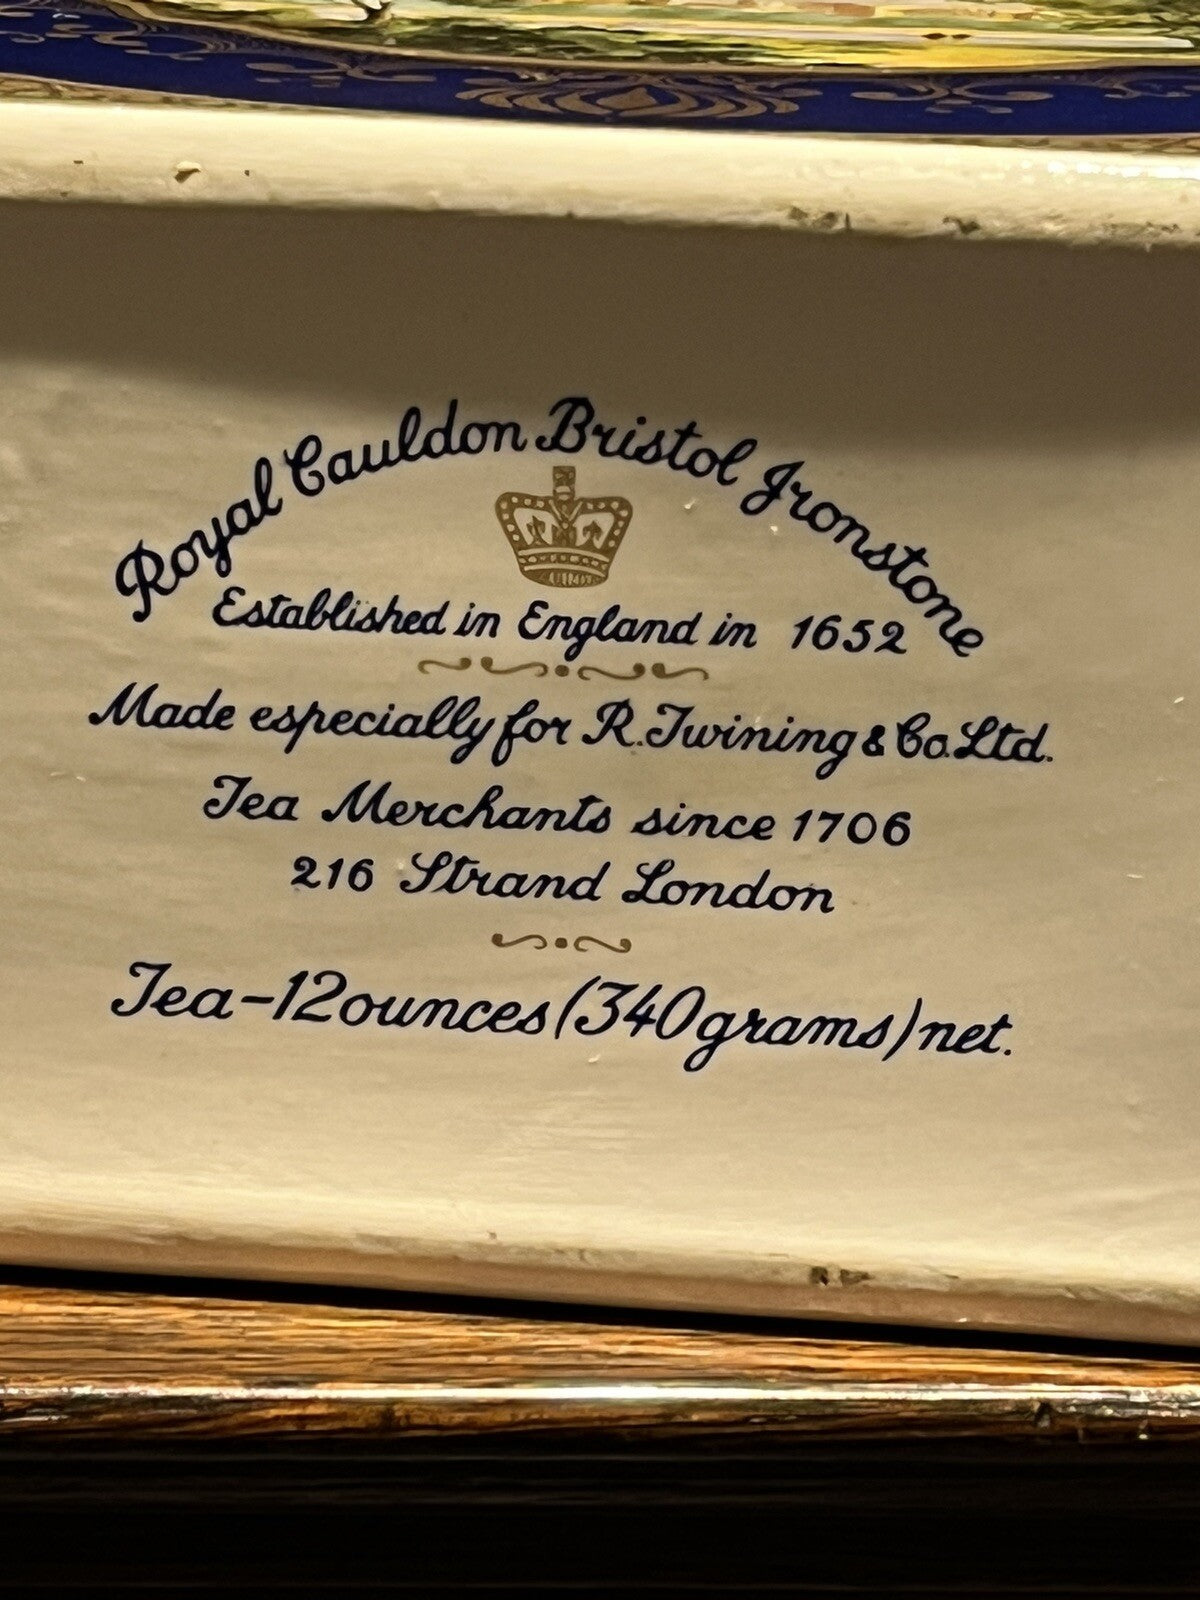 Royal Cauldon Bristol Ironstone
Established in England in 1652
Made especially for R. Twining & Co. Ltd.
Tea Merchants since 1706
216 Strand London
Tea-12 ounces (340 grams) net.